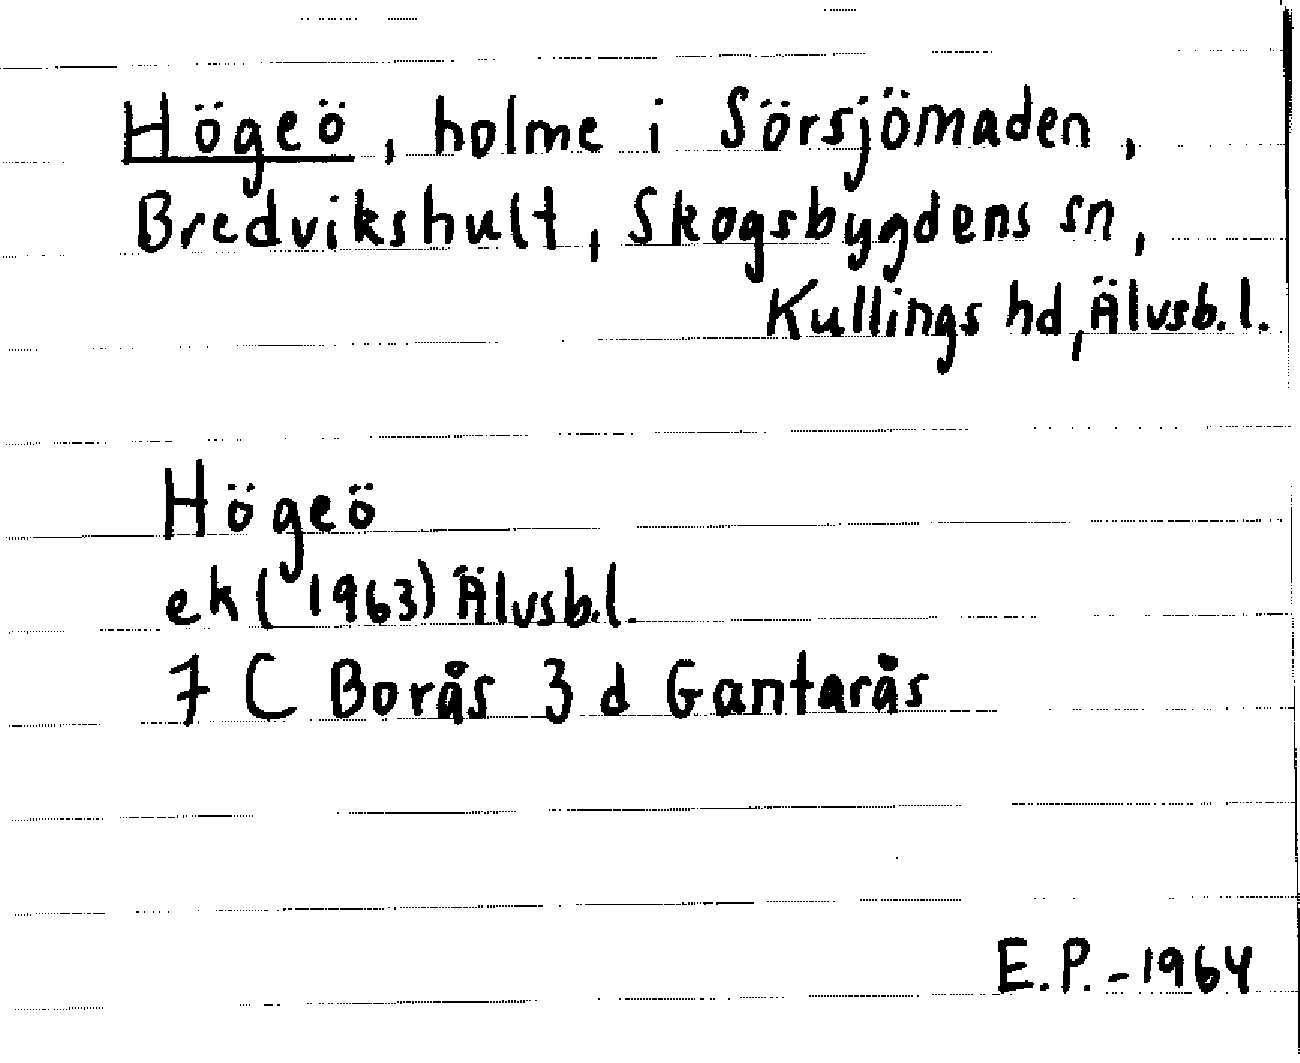 Högeö, holme i Sörsjömaden,
Bredvikshult, Skogsbygdens sn,
Kullings hd, Älvsb. l.
Högeö
ek (1963) Älvsb.l.
7 C Borås 3 d Gantarås
E.P. - 1964